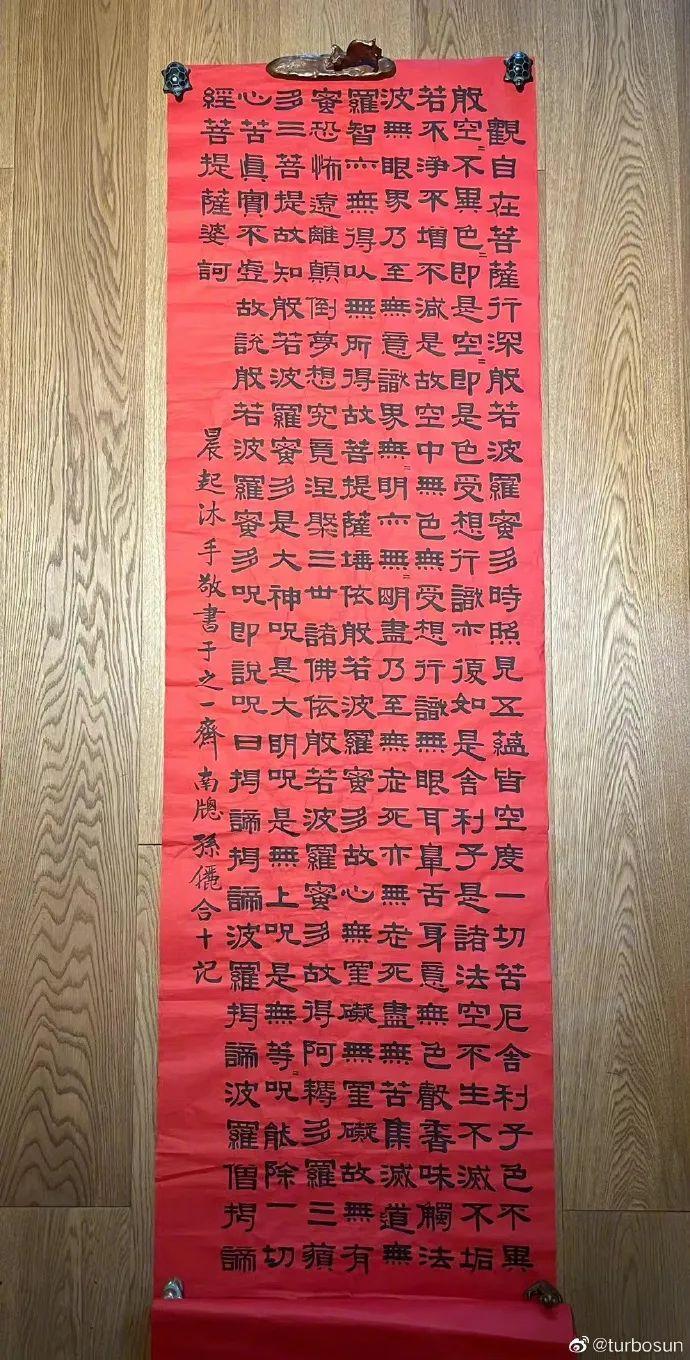 般若波羅蜜多心經
觀自在菩薩行深般若波羅蜜多時照見五蘊皆空度一切苦厄舍利子色不異
空=不異色=即是空=即是色受想行識亦復如是舍利子是諸法空不生不滅不垢
不淨不增不減是故空中無色無受想行識無眼耳鼻舌身意無色聲香味觸法
無眼界乃至無意識界無=明亦無=明盡乃至無老死亦無老死盡無苦集滅道無
智亦無得以無所得故菩提薩埵依般若波羅蜜多故心無罣礙無罣礙故無有
恐怖遠離顛倒夢想究竟涅槃三世諸佛依般若波羅蜜多故得阿耨多羅三藐
三菩提故知般若波羅蜜多是大神呪是大明呪是無上呪是無等=呪能除一切
苦真實不虛故說般若波羅蜜多呪即說呪曰揭諦揭諦波羅揭諦波羅僧揭諦
菩提薩婆訶
晨起沐手敬書于之一齋南牕孫儷合十記
@turbosun